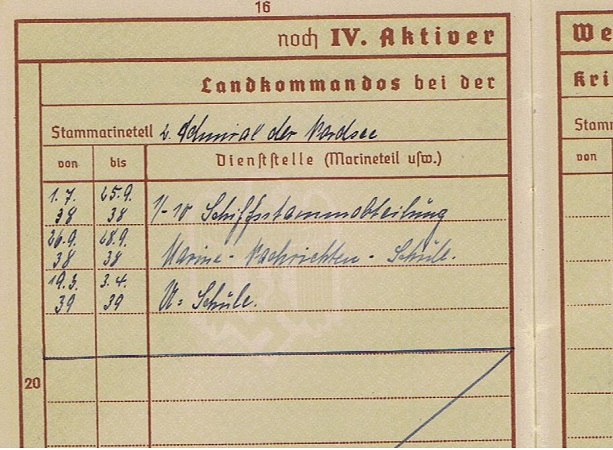 16
noch IV. Aktiver
Landkommandos bei der
Stammarineteil 2. Admiral der Nordsee
von bis Dienststelle (Marineteil usw.)
1.7. 25.9.
38 38 1/-10 Schiffsstammabteilung
26.9. 28.9.
38 38 Marine-Nachrichten-Schule.
19.3. 3.4.
39 39 U=Schule.
20
We
Kri
Stamm
von